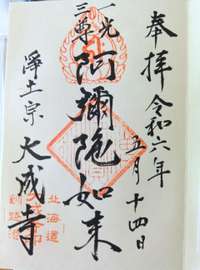 奉拝 令和六年
五月十四日
一光
三尊
阿彌陀如来
浄土宗 大成寺
北海道
釧路市